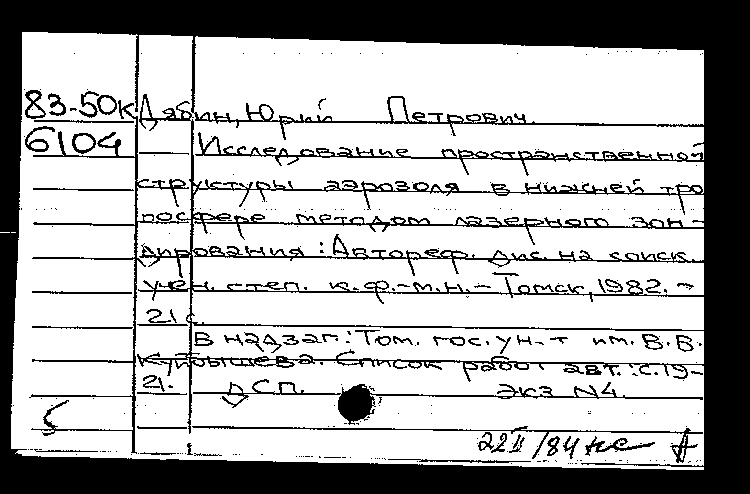 83-50к Дябин, Юрий Петрович.
6104 Исследование пространственной
структуры аэрозоля в нижней тро
посфере методом лазерного зон-
дирования : Автореф. дис. на соиск.
учен. степ. к.ф.-м.н. - Томск, 1982. -
21 с.
В надзаг.: Том. гос. ун-т им. В.В.
Куйбышева. Список работ авт.: с.19-
21. ДСП. экз N4.
22 II /84